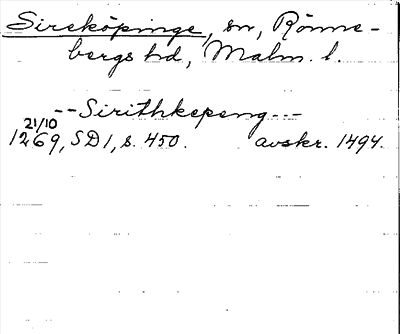 Sireköpinge, sn, Rönne-
bergs hd, Malm. l.
-- Sirithkepeng --
21/10
1269, SD 1, s. 450. avskr. 1494.